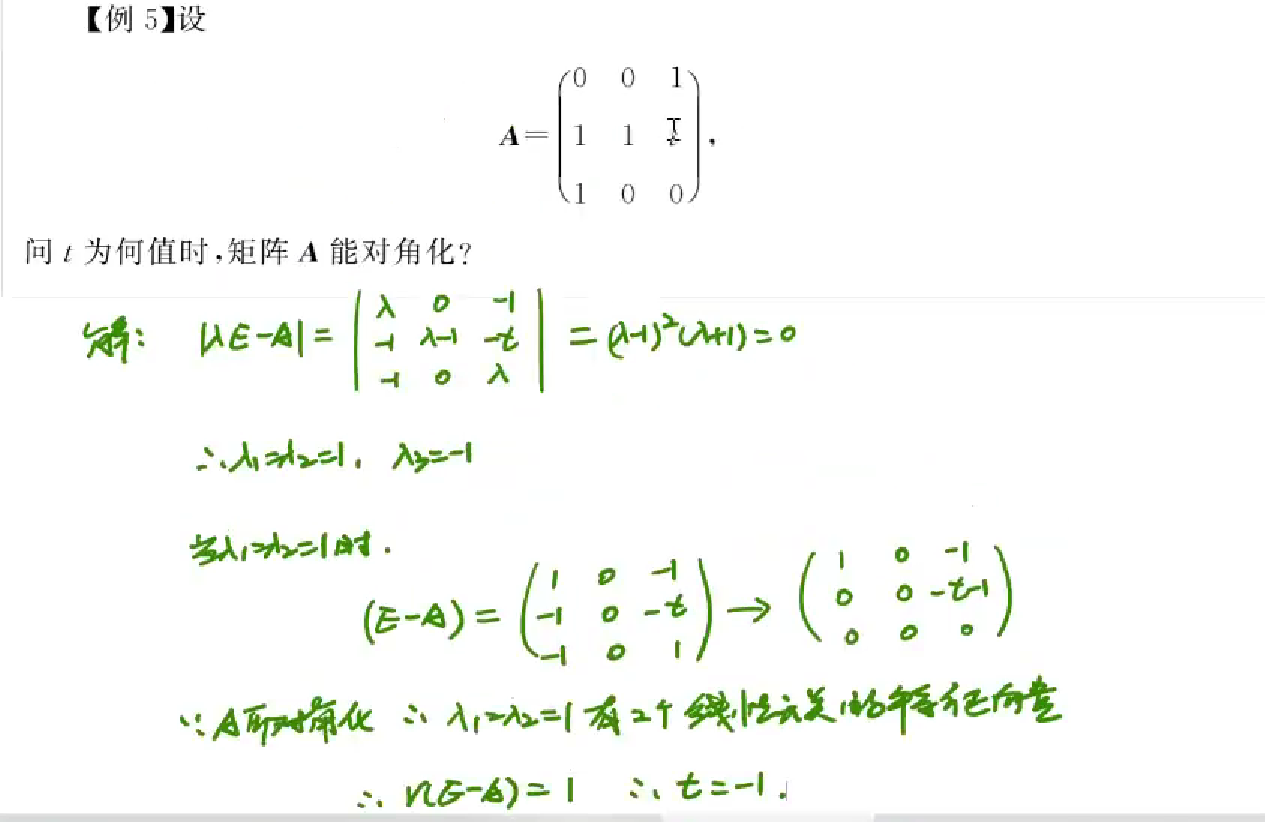 【例 5】设
A=
0 0 1
1 1 t
1 0 0
,
问 t 为何值时,矩阵 A 能对角化?
解: |λE-A| = | λ 0 -1 | = (λ-1)²(λ+1)=0
| -1 λ-1 -t |
| -1 0 λ |
∴ λ₁=λ₂=1, λ₃=-1
当λ₁=λ₂=1时.
(E-A) = ( 1 0 -1 ) → ( 1 0 -1 )
( -1 0 -t ) ( 0 0 -t-1 )
( -1 0 1 ) ( 0 0 0 )
∵ A可对角化 ∴ λ₁=λ₂=1有2个线性无关的特征向量
∴ r(E-A)=1 ∴ t=-1.